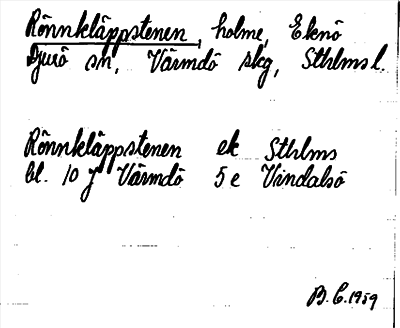 Rönnkläppstenen, holme, Eknö
Djurö sn, Värmdö skg, Sthlms l.
Rönnkläppstenen ek Sthlms
bl. 10 J Värmdö 5 e Vindalsö
B. C. 1959